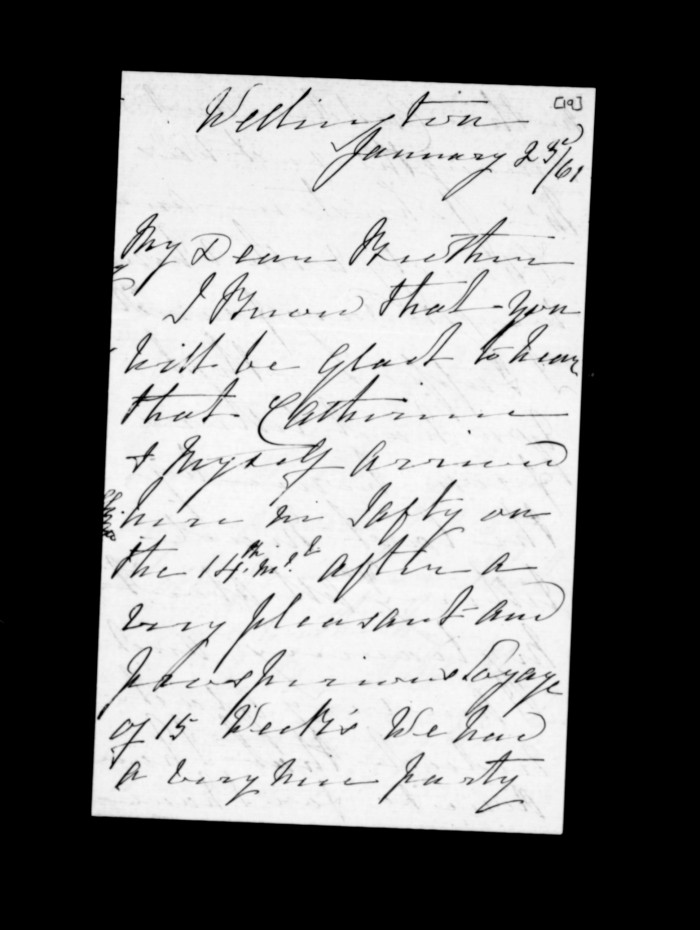 [19]
Wellington
January 23d/61
My Dear Brother
I Know that you
will be Glad to hear
that Catherine
& Myself arrived
here in Safty on
the 14th inst after a
very pleasant and
prosperious Voyage
of 15 Week's We had
a very nice party